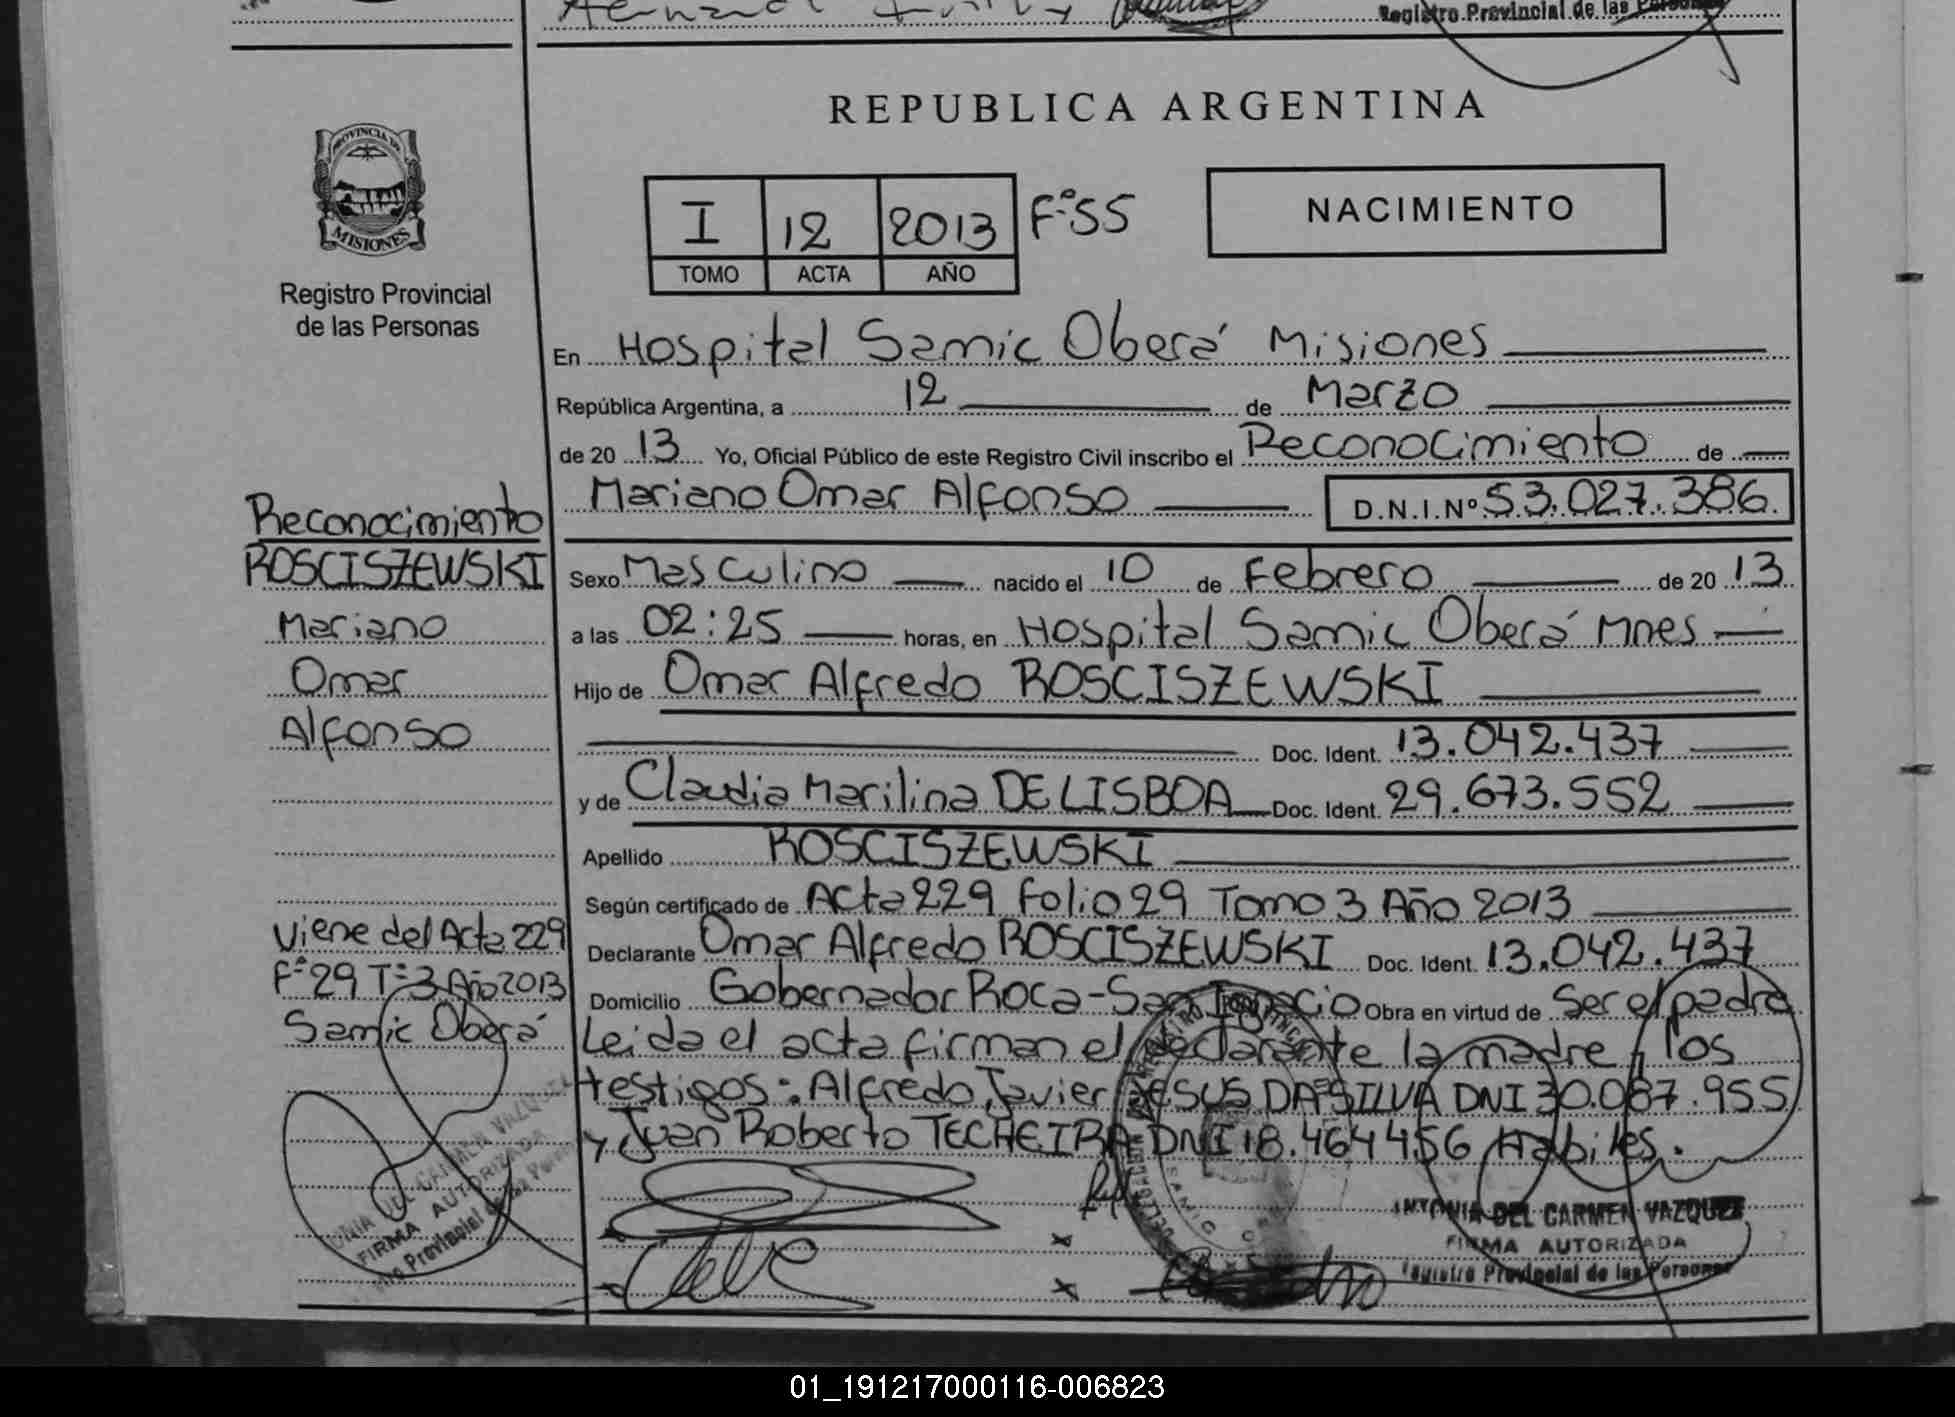 Registro Provincial de las Personas
REPUBLICA ARGENTINA
PROVINCIA DE
MISIONES
Registro Provincial
de las Personas
I 12 2013 Fº55
TOMO ACTA AÑO
NACIMIENTO
En Hospital Samic Oberá Misiones
República Argentina, a 12 de Marzo
de 20 13 Yo, Oficial Público de este Registro Civil inscribo el Reconocimiento de
Mariano Omar Alfonso D.N.I.Nº 53.027.386.
Sexo Masculino nacido el 10 de Febrero de 20 13
a las 02:25 horas, en Hospital Samic Oberá Mnes
Hijo de Omar Alfredo ROSCISZEWSKI
Doc. Ident. 13.042.437
y de Claudia Marilina DE LISBOA Doc. Ident. 29.673.552
Apellido ROSCISZEWSKI
Según certificado de Acta 229 Folio 29 Tomo 3 Año 2013
Declarante Omar Alfredo ROSCISZEWSKI Doc. Ident. 13.042.437
Domicilio Gobernador Roca-San Ignacio Obra en virtud de Ser el padre
Leida el acta firman el declarante la madre y los
testigos: Alfredo Javier JESUS DA SILVA DNI 30.087.955
y Juan Roberto TECHEIRA DNI 18.464456 Habiles.
ANTONIA DEL CARMEN VAZQUEZ
FIRMA AUTORIZADA
Registro Provincial de las Personas
Reconocimiento
ROSCISZEWSKI
Mariano
Omar
Alfonso
Viene del Acta 229
Fº29 Tº3 Año2013
Samic Oberá
DEL CARMEN VAZQUEZ
FIRMA AUTORIZADA
Provincial de las
01_191217000116-006823